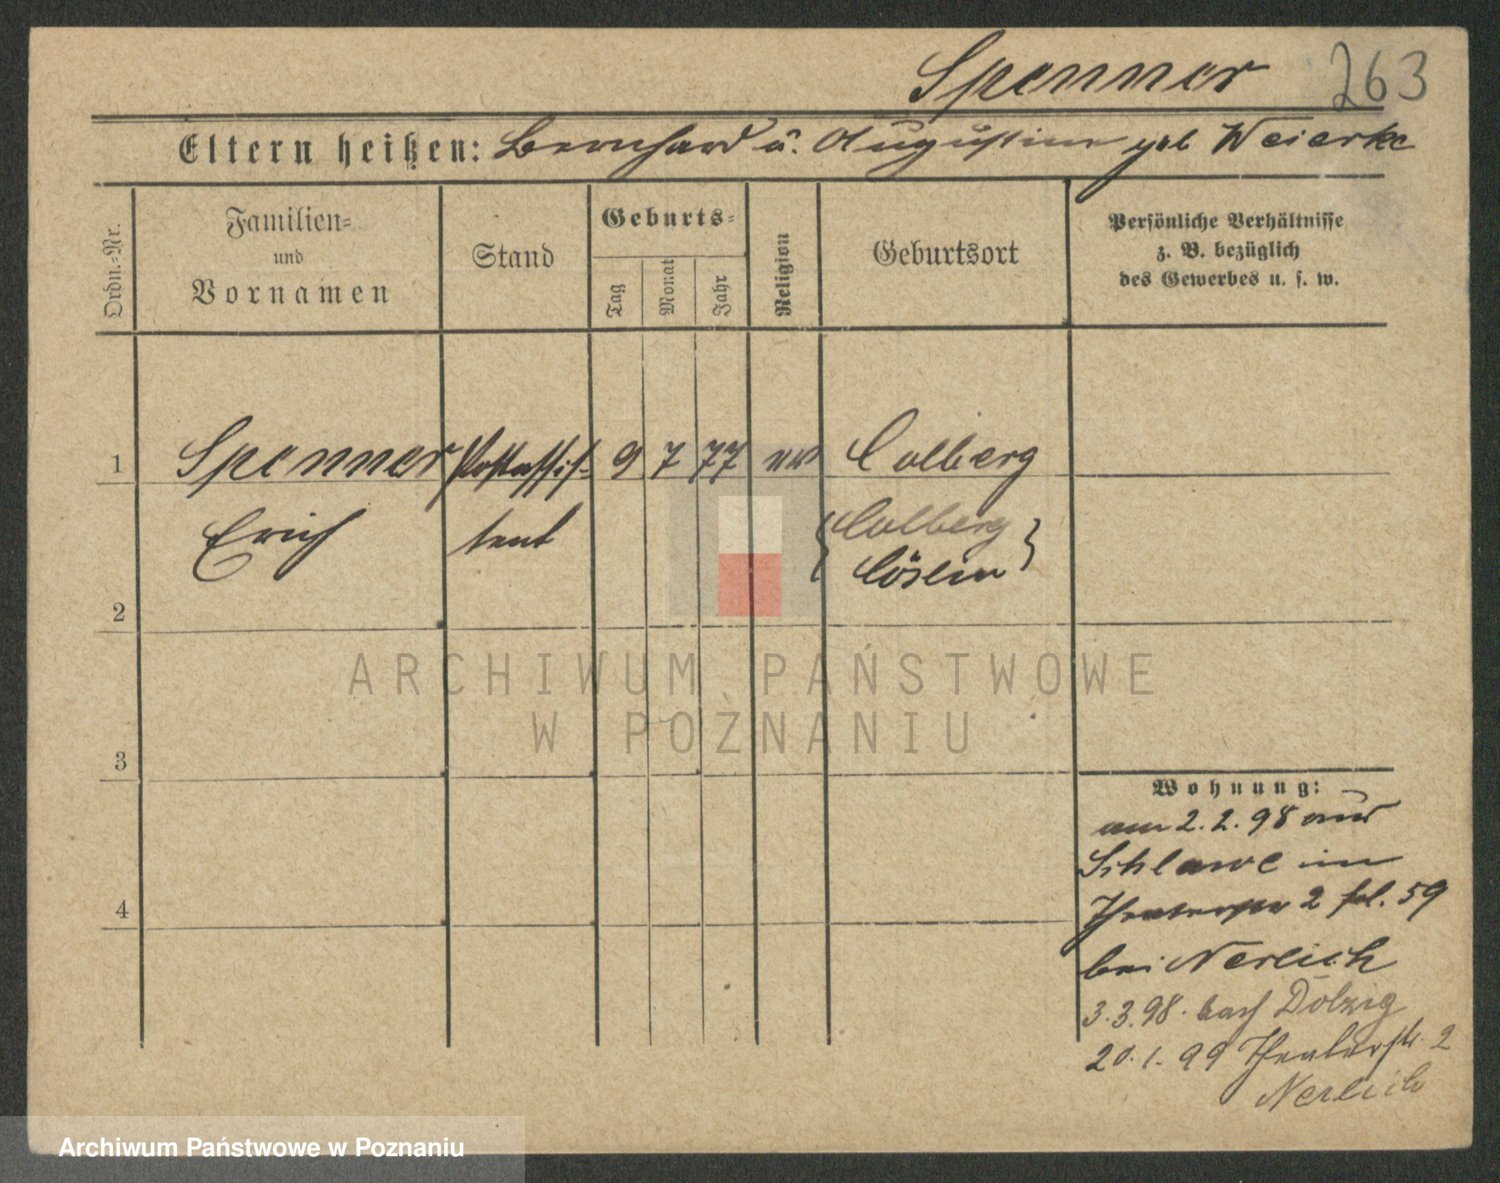 Spenner 263
Eltern heißen: Bernhard u. Augustine geb Weierke
Ordn.-Nr.
Familien-
und
Vornamen
Stand
Geburts-
Tag
Monat
Jahr
Religion
Geburtsort
Persönliche Verhältnisse
z. B. bezüglich
des Gewerbes u. s. w.
1 Spenner Postassis- 9 7 77 ev Colberg
Erich tent {Colberg
Cöslin}
2
3
4
Wohnung:
am 2.2.98 aus
Schlawe in
Theaterstr 2 fol. 59
bei Nerlich
3.3.98. nach Dolzig
20.1.99 Theaterstr. 2
Nerlich
ARCHIWUM PAŃSTWOWE
W POZNANIU
Archiwum Państwowe w Poznaniu